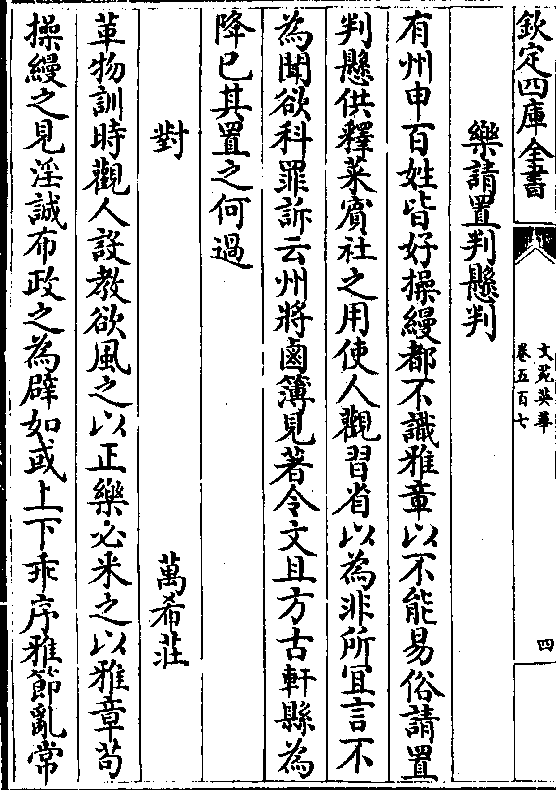 欽定四庫全書
文苑英華
卷五百七
四
樂請置判懸判
有州申百姓皆好操縵都不識雅章以不能易俗請置
判懸供釋菜賓社之用使人觀習省以為非所宜言不
為聞欲科罪訴云州將鹵簿見著令文且方古軒縣為
降已其置之何過
對
萬希莊
革物訓時觀人設教欲風之以正樂必米之以雅章苟
操縵之見淫誠布政之為辟如或上下乖序雅節亂常